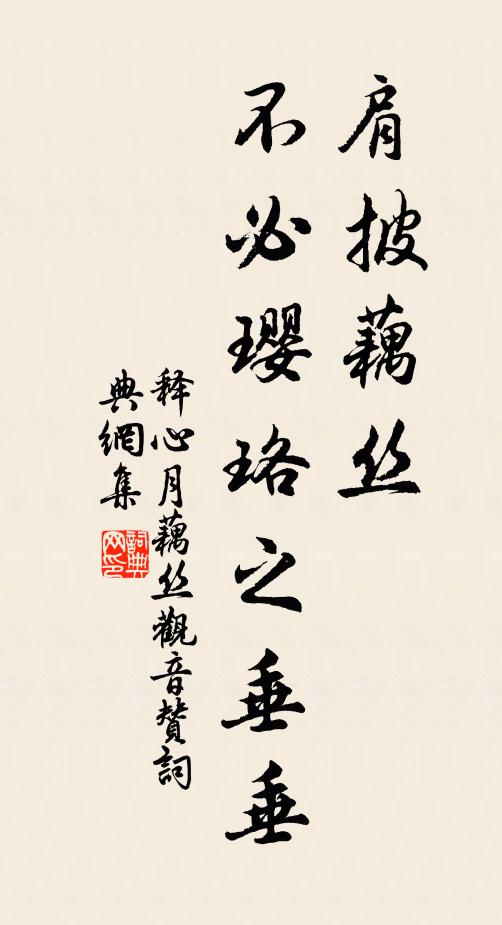 肩披藕丝
不必璎珞之垂垂
释心月藕丝觀音赞詞
典網集
詞典
网印